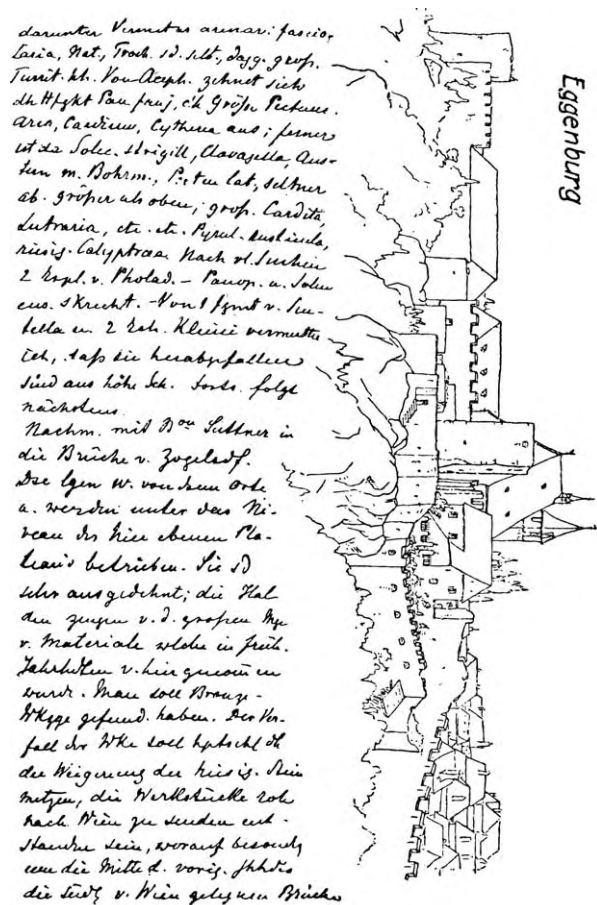 darunter Vermetus arenar. fascio-
laria, Nat., Troch. sd. selt., dagg. groß.
Turrit. hh. Von Aceph. zchnet sich
dh Pan fauj, Größe Pectunc.
Arca, Cardium, Cytherea aus; ferner
ist da Solec. strigill, Clavagella, Aus-
tern m. Bohrm., Pecten lat., seltner
ab. größer als oben; groß. Cardita,
Lutraria, etc. etc. Pyrul.
riesig. Calyptraea. Nach vl. Suchen
2 Expl. v. Pholad. – Panop. u. Solen
skrecht. – Von 1 Fgmt v. Scu-
tella u. 2 Ech. Kleini vermuthe
ich, daß sie herabgefallen
sind aus höhe Sch. Forts. folgt
nächstens.
Nachm. mit Bon Suttner in
die Brüche v. Zogelsdf.
Dse lgen W. von dsem Orte
u. werden unter dem Ni-
veau des hier ebenen Pla-
teau's betrieben. Sie sd
sehr ausgedehnt; die Hal
den zeugen v. d. großen Mge
v. Materiale welche in früh.
Jahrhdten v. hier genom̄en
wurde. Man soll Bronze-
Wkzge gefund. haben. Der Ver-
fall der Wke soll hptschl dh
die Weigerung der hiesig. Stein
metzen, die Werkstücke roh
nach Wien zu senden ent-
standen sein, worauf besonds
um die Mitte d. vorig. Jhhdts
die südl v. Wien gelegenen Brüche
Eggenburg